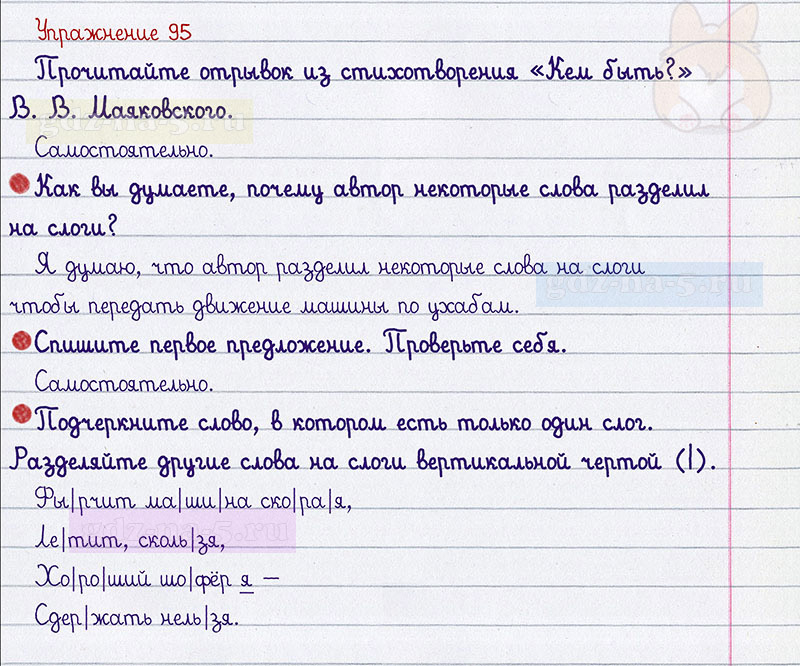 Упражнение 95
Прочитайте отрывок из стихотворения «Кем быть?»
В. В. Маяковского.
gdz-na-5.ru
Самостоятельно.
Как вы думаете, почему автор некоторые слова разделил
на слоги?
Я думаю, что автор разделил некоторые слова на слоги
gdz-na-5.ru
чтобы передать движение машины по ухабам.
Спишите первое предложение. Проверьте себя.
Самостоятельно.
Подчеркните слово, в котором есть только один слог.
Разделяйте другие слова на слоги вертикальной чертой (|).
Фы|рчит ма|ши|на ско|ра|я,
gdz-na-5.ru
Ле|тит, сколь|зя,
Хо|ро|ший шо|фёр я –
Сдер|жать нель|зя.